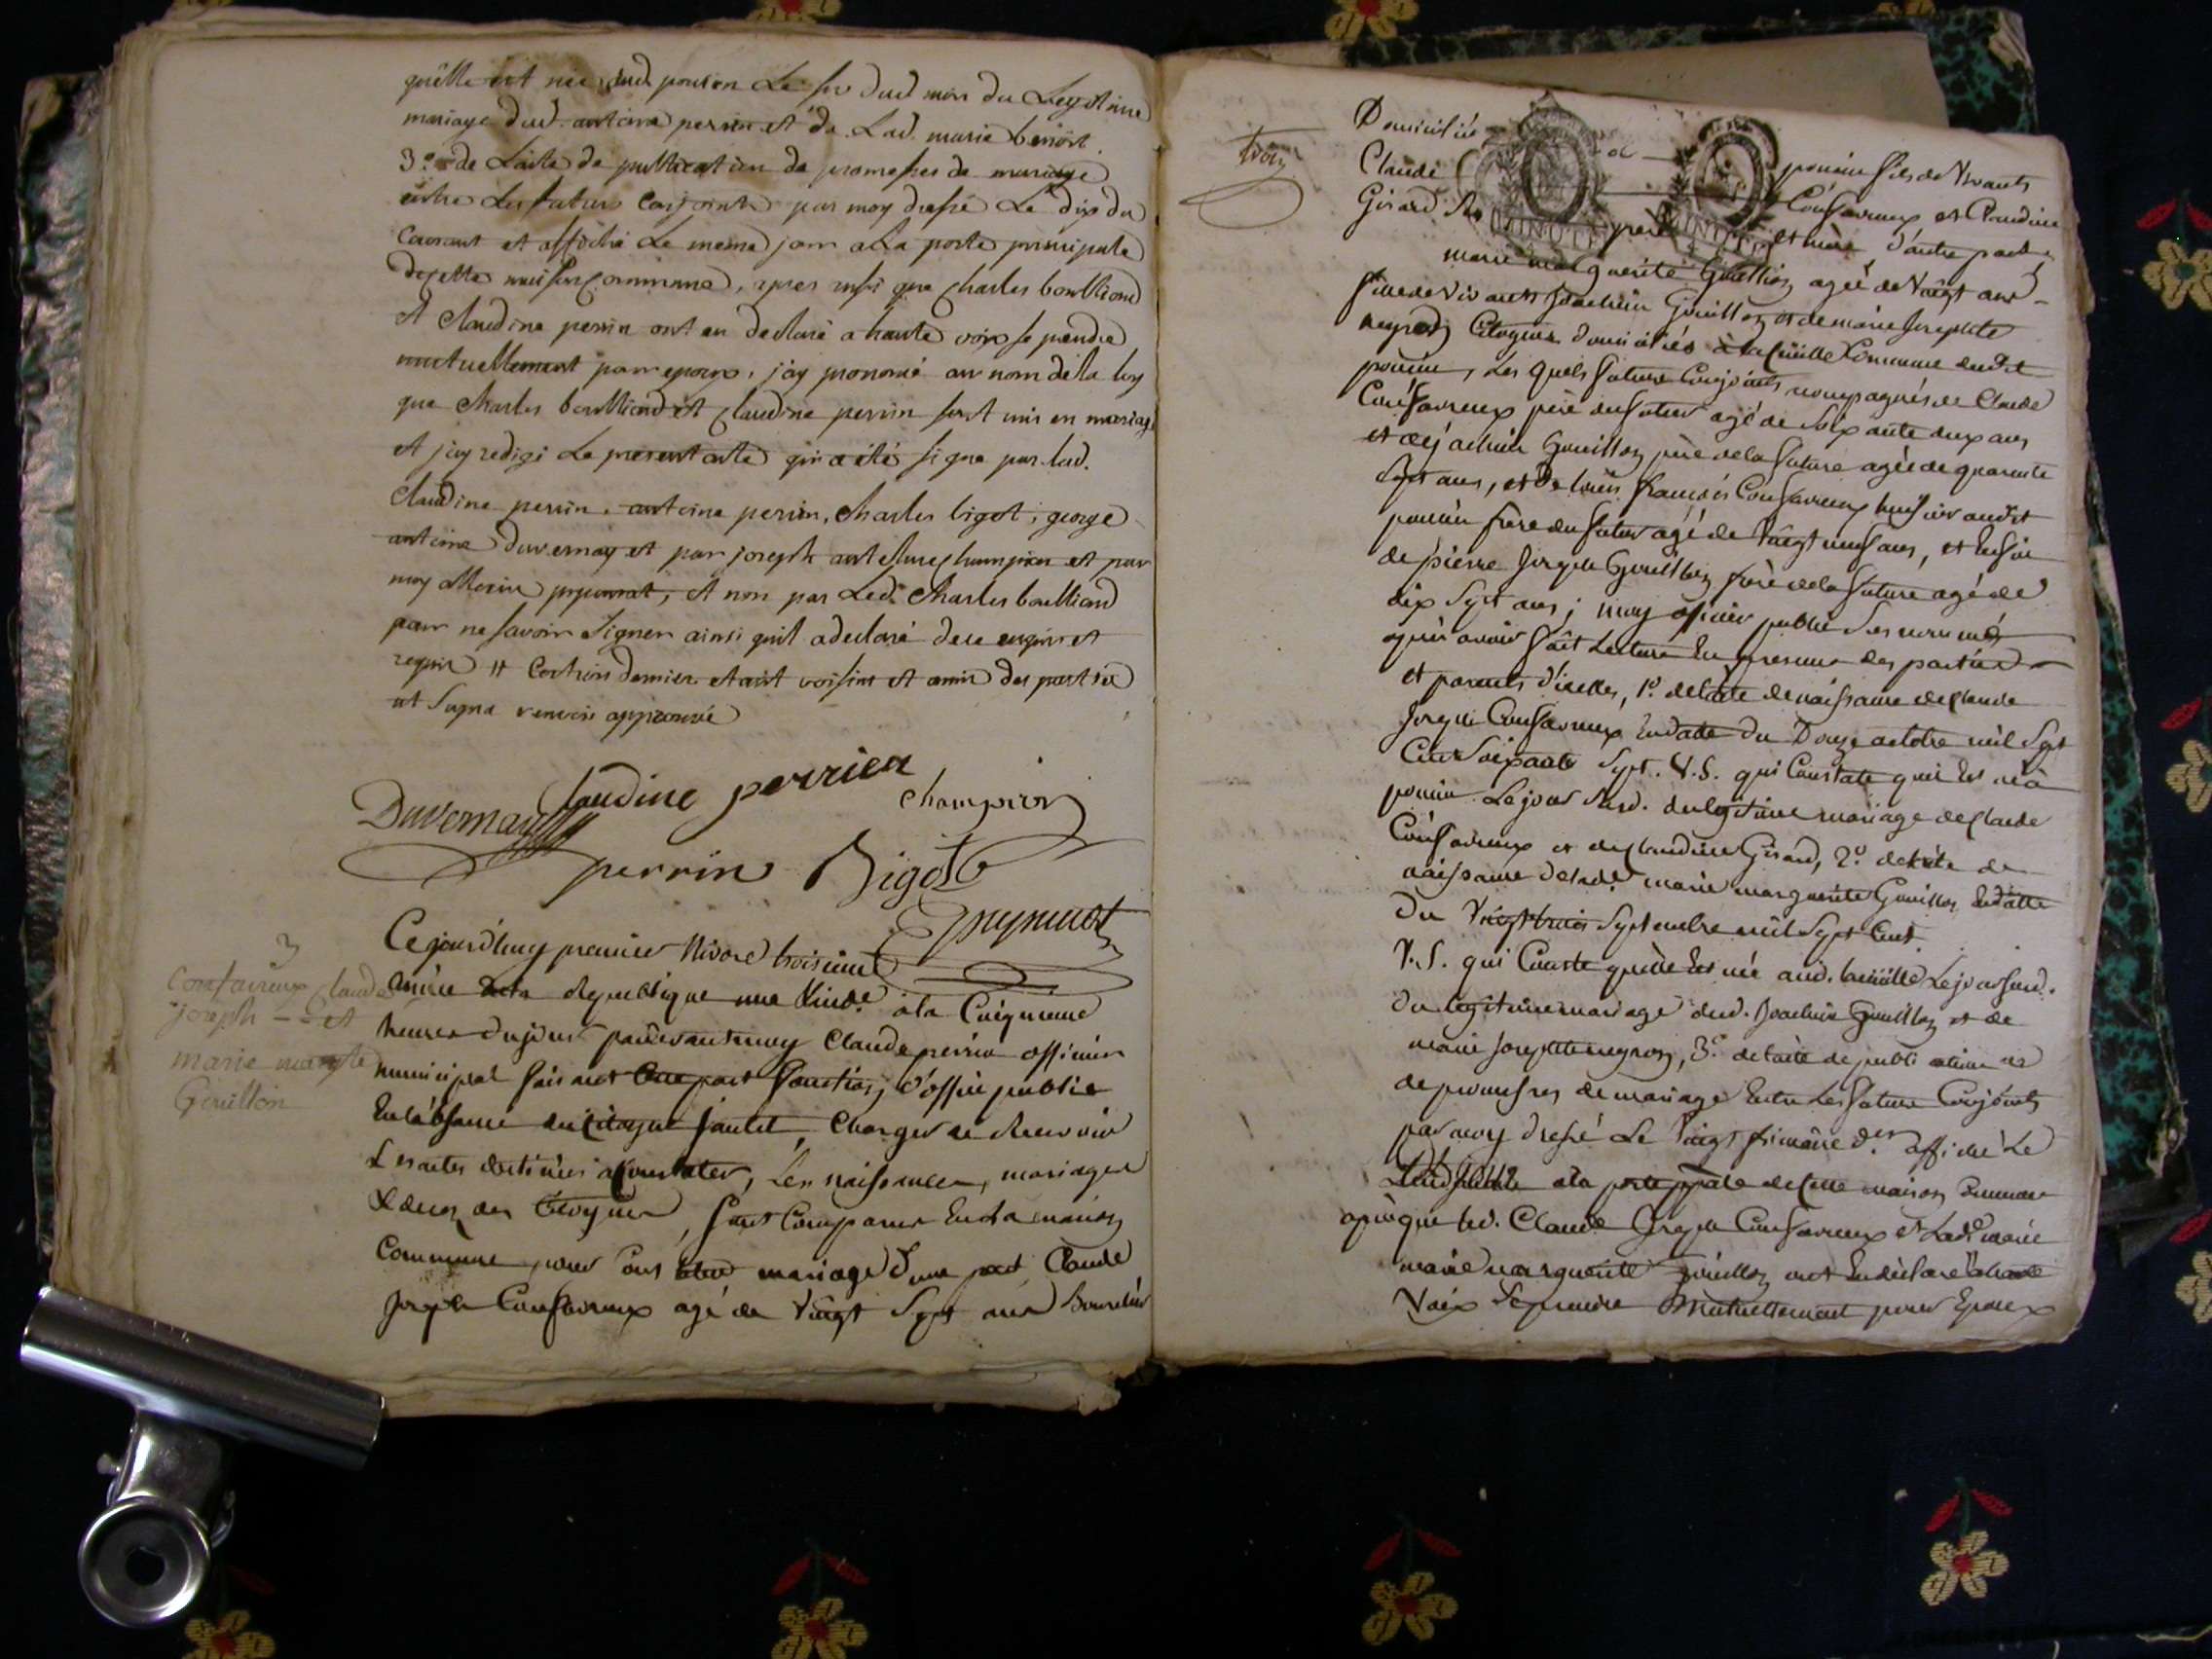 quelle est née aud. pouson Le six dud mois du Legitime
mariage dud. antoine perrin et de Lad. marie benoist.
3.º de Lacte de publication de promesses de mariage
entre Les futurs Conjoints par moy dressé Le dix du
Courant et affiché Le meme jour a La porte principale
de cette maison Commune, apres aussi que Charles boulliand
et Claudine perrin ont eu declaré a haute voix se prendre
mutuellement pour epoux, j'ay prononcé au nom de la loy
que Charles boulliand et Claudine perrin sont unis en mariage
et j'ay redigé Le present acte qui a été signé par lad.
Claudine perrin, antoine perrin, Charles bigot, george
antoine duvernay et par joseph champion et par
moy et non par Led. Charles boulliand
pour ne savoir signer ainsi quil a declaré de ce enquis et
requis dernier etant voisins et amis des parties
renvoi approuvé
Claudine perrien
Duvernay champion
perrin Bigot
3
Confavreux Claude
joseph -- et
marie margte
Gouillon
Cejourd'huy premier Nivose troisieme
année de la Republique une Indle. a la
heures du jour pardevant moy Claude perrin officier
municipal faisant fonction d'office public
En l'absence du Citoyen Jantet, Charger de Recevoir
Les actes destinées a Constater, Les naissances, mariages
& deces des Citoyens, sont Comparus En La maison
Commune pour mariage d'une part Claude
Joseph Confavreux agé de Vingt Sept ans Bourelier
trois
Domicilié a pouain fils de Vivants
Claude Confavreux et Claudine
Girard Ses père et mère, d'autre part,
marie marguerite Gouillon agée de Vingt ans
fille de Vivants Joachim Gouillon et de marie Josephte
negron Citoyens domiciliés Commune dudit
, Les quels futurs Conjoints accompagnés de Claude
Confavreux père du futur agé de Soixante deux ans
et de Joachim Gouillon père de la future agée de quarante
Sept ans, et de françois Confavreux huissier audit
frère du futur agé de Vingt neuf ans, et Enfin
de pierre Joseph Gouillon frère de la future agé de
dix Sept ans; moy officier public Susnommé
après avoir fait Lecture En presence des parties
et parents d'icelles, 1.º de l'acte de naissance de Claude
Joseph Confavreux En date du Douze octobre mil Sept
Cent Soixante Sept. V.S. qui Constate qu'il Est né à
Le jour Susd. du legitime mariage de Claude
Confavreux et de Claudine Girard, 2.º de l'acte de
naissance de lade. marie marguerite Gouillon En datte
du Vingt trois Septembre mil Sept Cent
V.S. qui Constate qu'elle Est née aud. Le jour Susd.
du legitime mariage dud. Joachim Gouillon et de
marie Josephte negron, 3.º de l'acte de publication
de promesses de mariage Entre Les futurs Conjoints
par moy dressé Le Vingt frimaire der. affiché Le
a la porte pple de Cette maison Commune
après que led. Claude Joseph Confavreux et Lade marie
marie marguerite Gouillon ont Eu déclaré à haute
Voix Se prendre Mutuellement pour Epoux